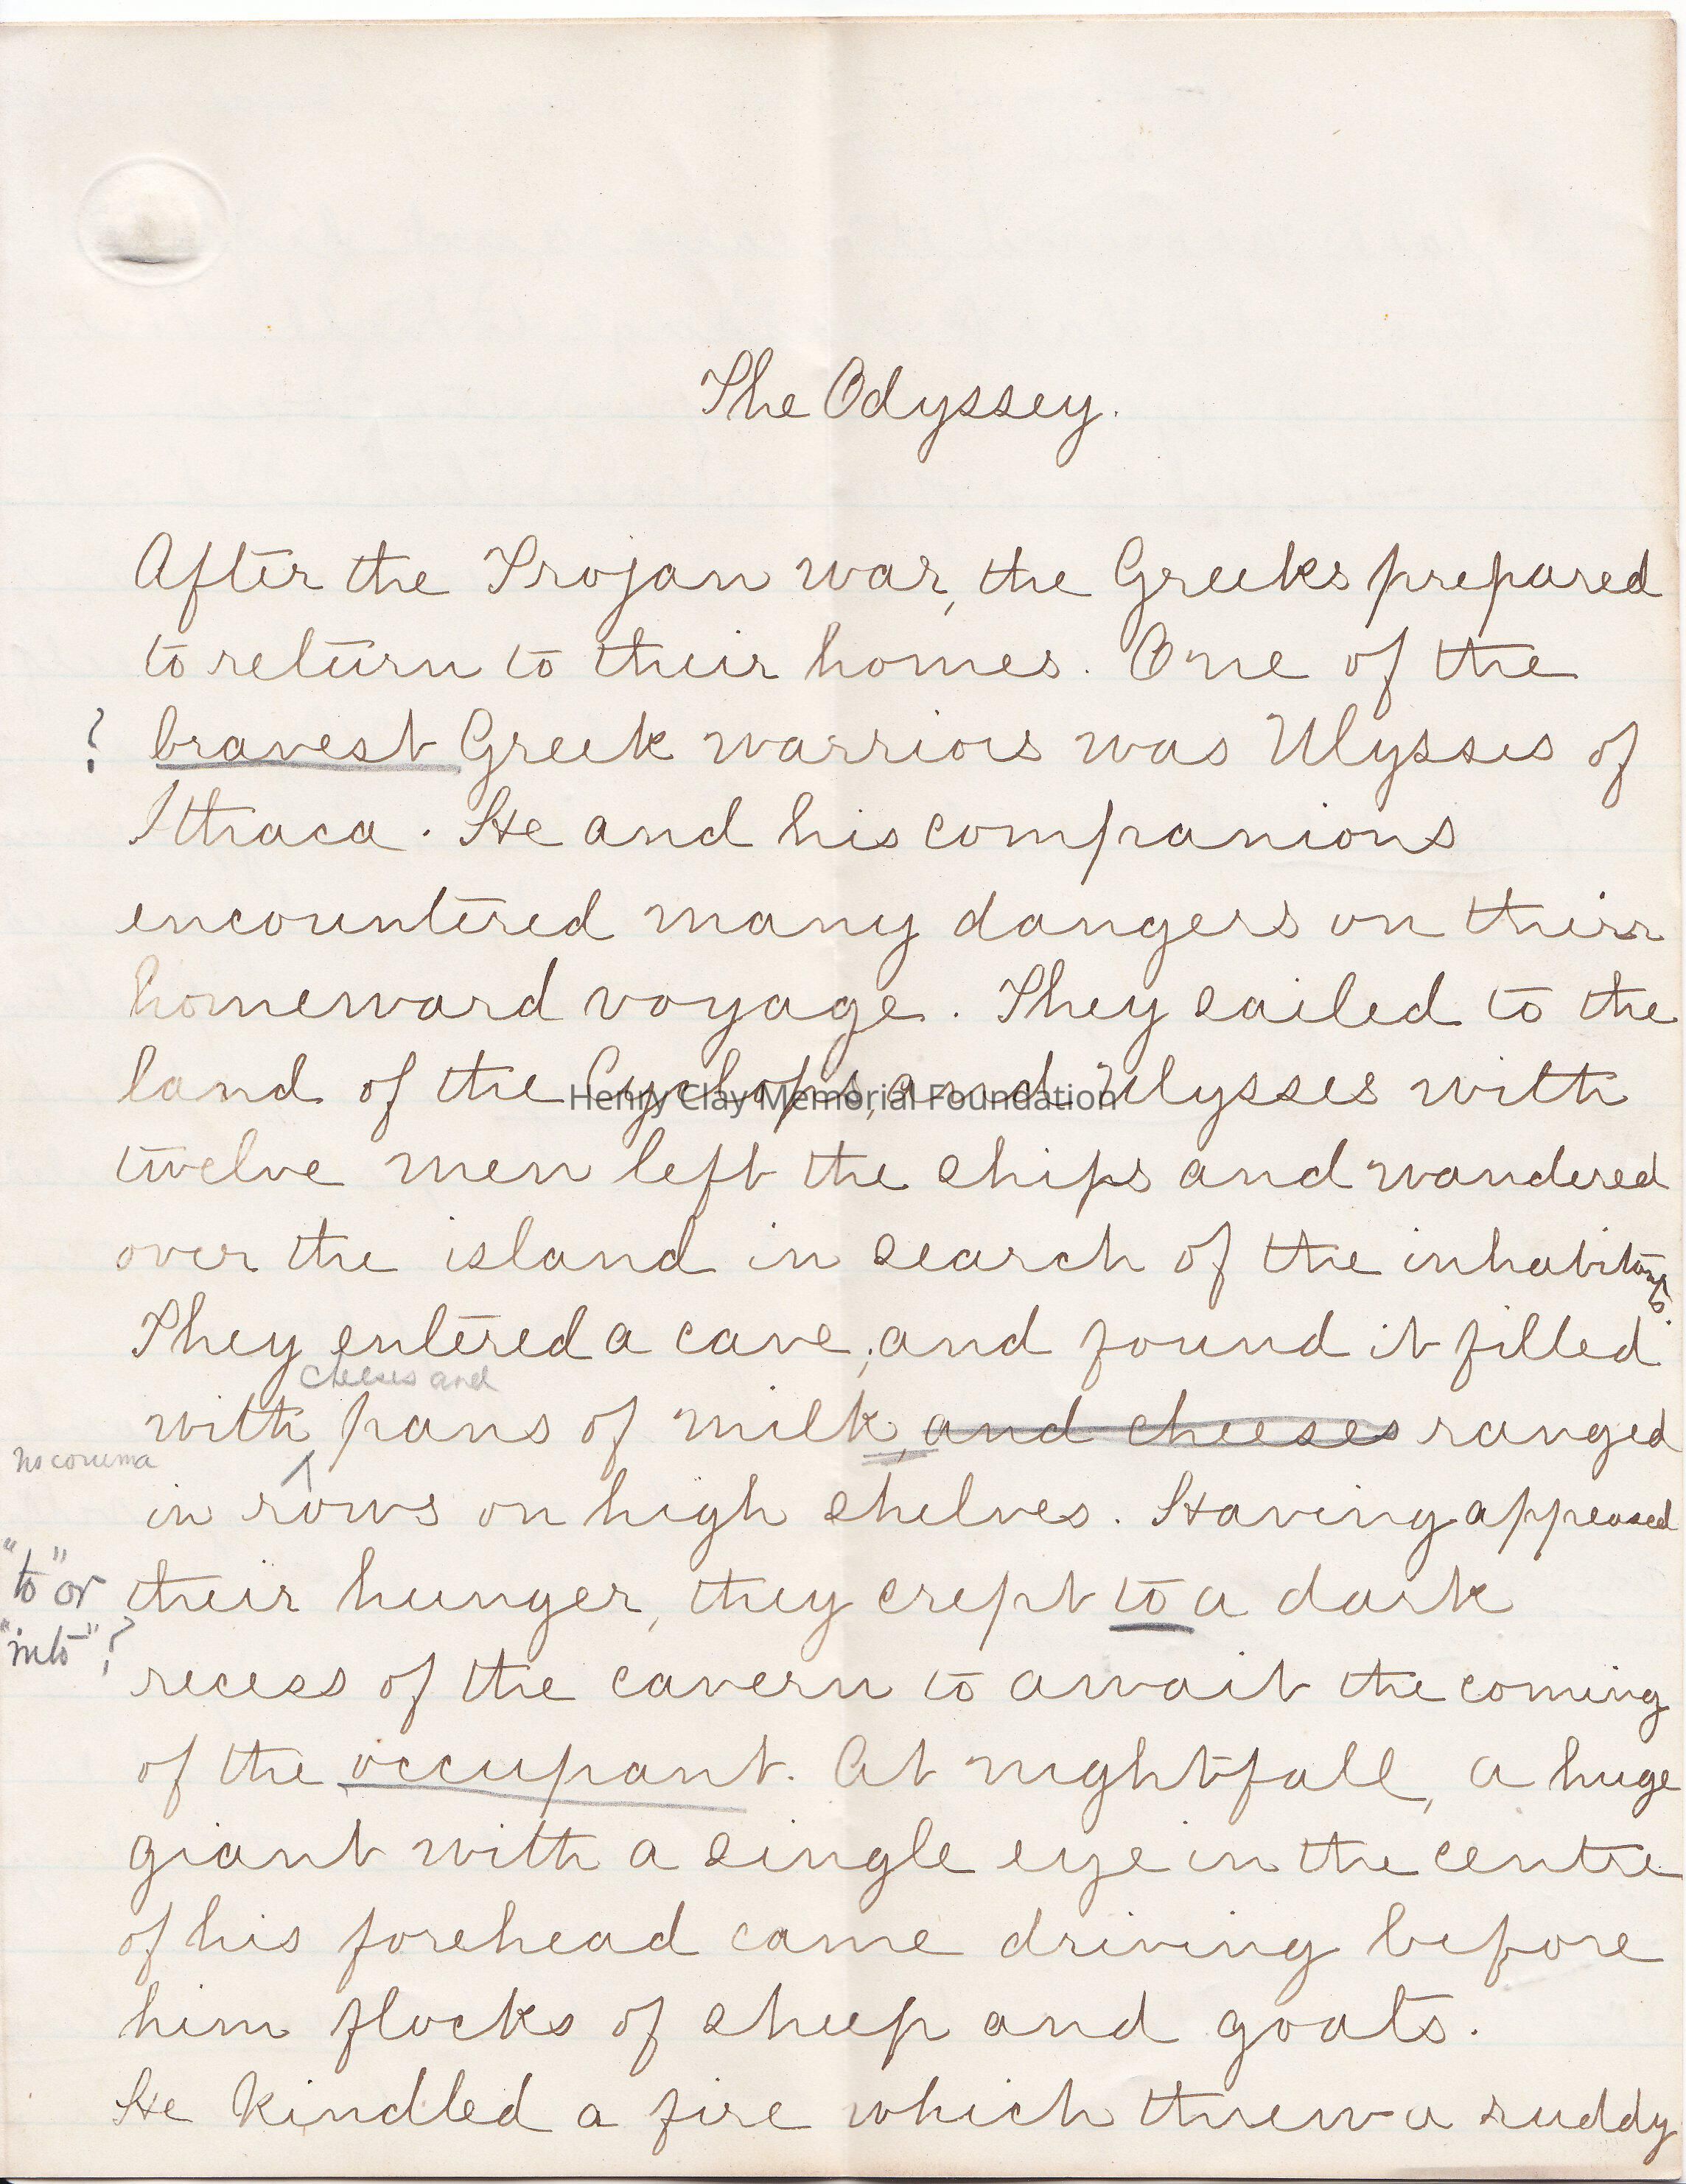 The Odyssey.
After the Trojan war, the Greeks prepared
to return to their homes. One of the
? bravest Greek warriors was Ulysses of
Ithaca. He and his companions
encountered many dangers on their
homeward voyage. They sailed to the
land of the Cyclops, and Ulysses with
Henry Clay Memorial Foundation
twelve men left the ships and wandered
over the island in search of the inhabitants.
They entered a cave, and found it filled
cheeses and
with pans of milk, and cheeses ranged
no comma
in rows on high shelves. Having appeased
"to" or
their hunger, they crept to a dark
"into"?
recess of the cavern to await the coming
of the occupant. At nightfall, a huge
giant with a single eye in the centre
of his forehead came driving before
him flocks of sheep and goats.
He kindled a fire which threw a ruddy